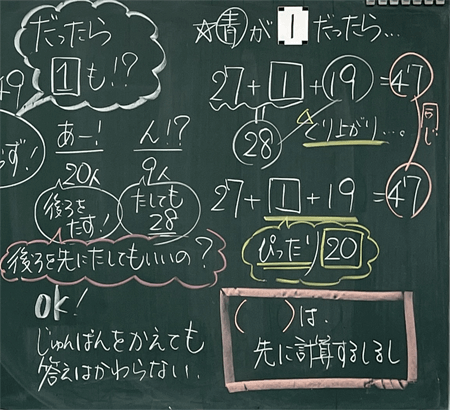 だったら
1も!?
49
ず!
あー!
20人
後ろを
たす!
ん!?
9人
たしても
28
後ろを先にたしてもいいの?
OK!
じゅんばんをかえても
答えはかわらない.
☆青が1だったら…
27+1+19=47
28
くり上がり…。
同じ
27+1+19=47
ぴったり20
( )は、
先に計算するしるし